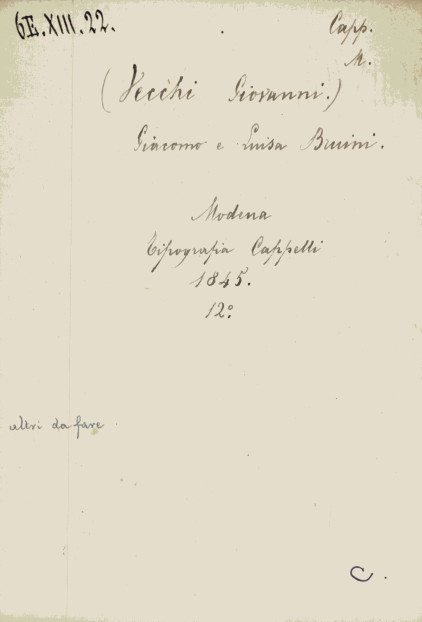 6E.XIII.22.
Capp.
M.
(Vecchi Giovanni.)
Giacomo e Luisa Bruini.
Modena
Tipografia Cappelli
1845.
12º
altri da fare
C.